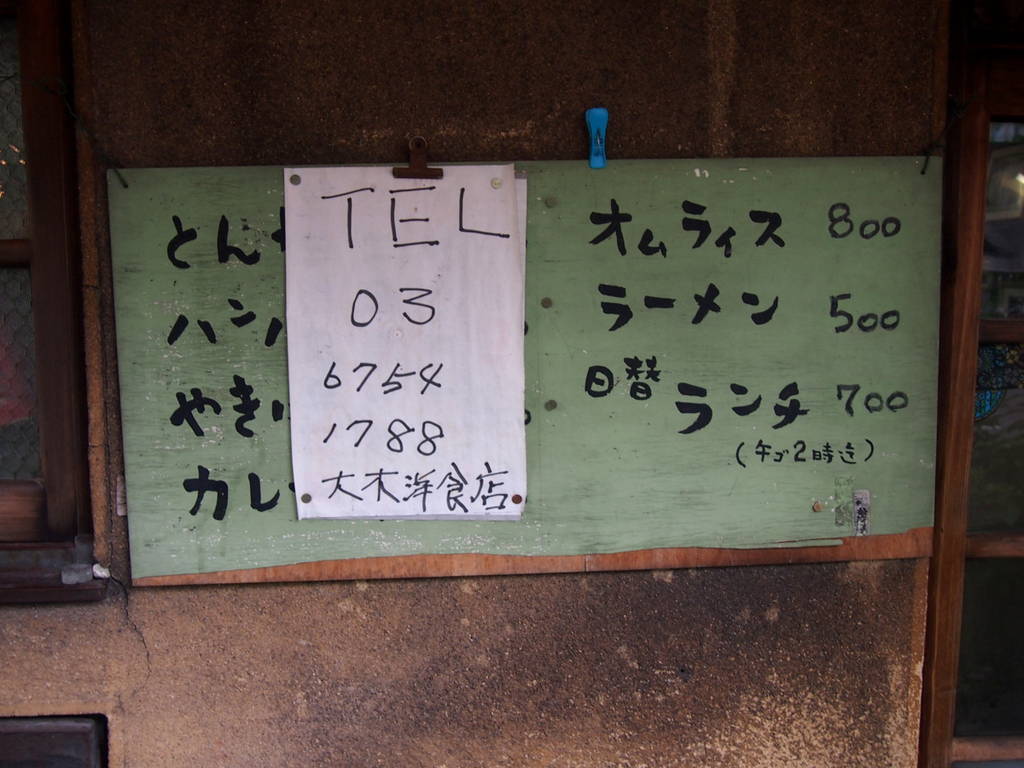 とん
ハン
やき
カレ
TEL
03
6754
1788
大木洋食店
オムライス 800
ラーメン 500
日替ランチ 700
(午ゴ2時迄)